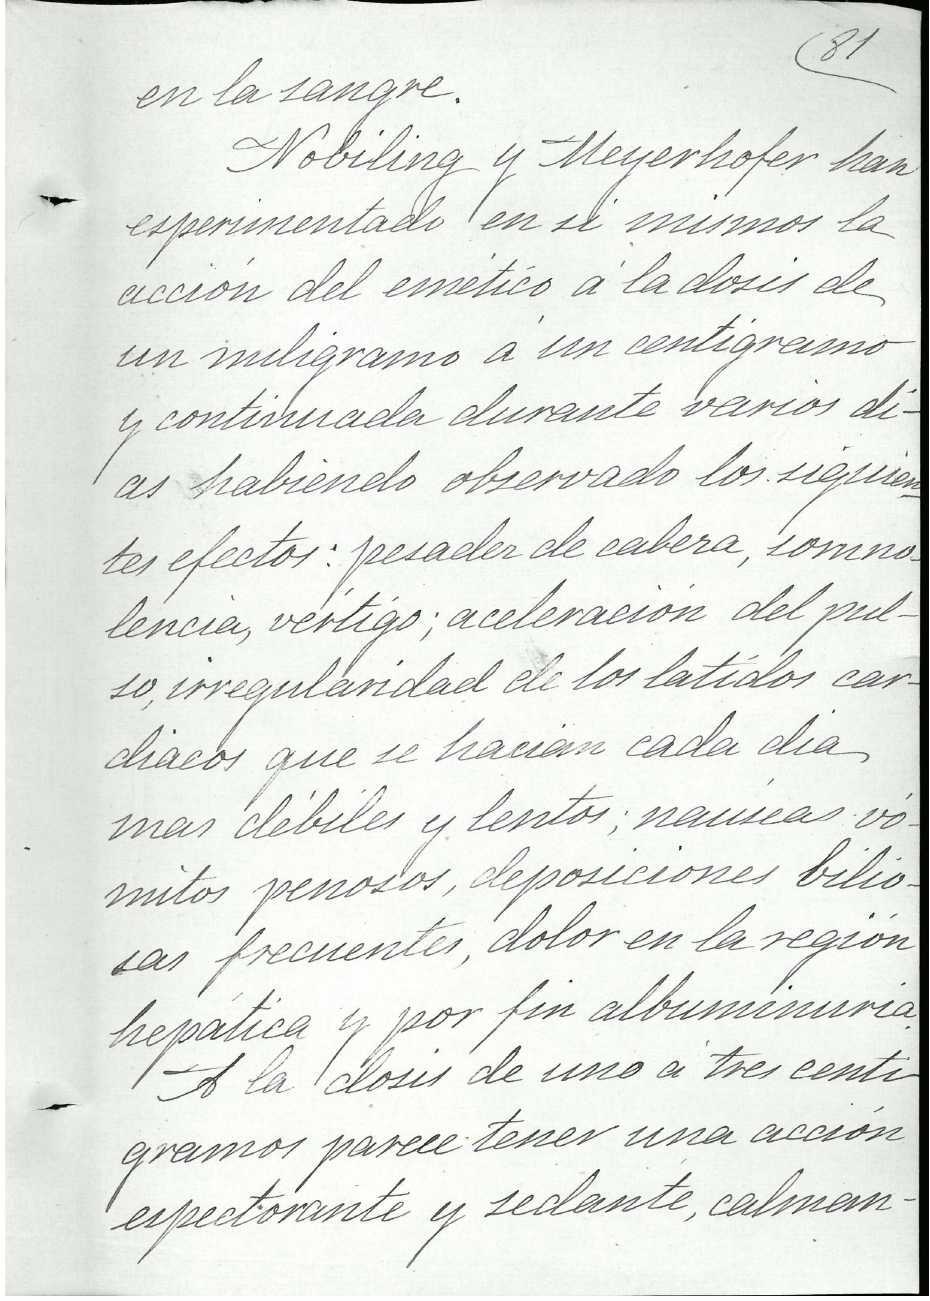 81
en la sangre.
Nobiling y Meyerhofer han
esperimentado en si mismos la
acción del emético á la dosis de
un miligramo á un centigramo
y continuada durante varios dí-
as habiendo observado los siguien-
tes efectos: pesadez de cabeza, somno-
lencia, vértigo; aceleración del pul-
so, irregularidad de los latídos car-
diacos que se hacian cada dia
mas débiles y lentos; naúseas vó-
mitos penosos, deposiciones bilio-
sas frecuentes, dolor en la región
hepática y por fin albuminuria.
A la dosis de uno á tres centi-
gramos parece tener una acción
espectorante y sedante, calman-